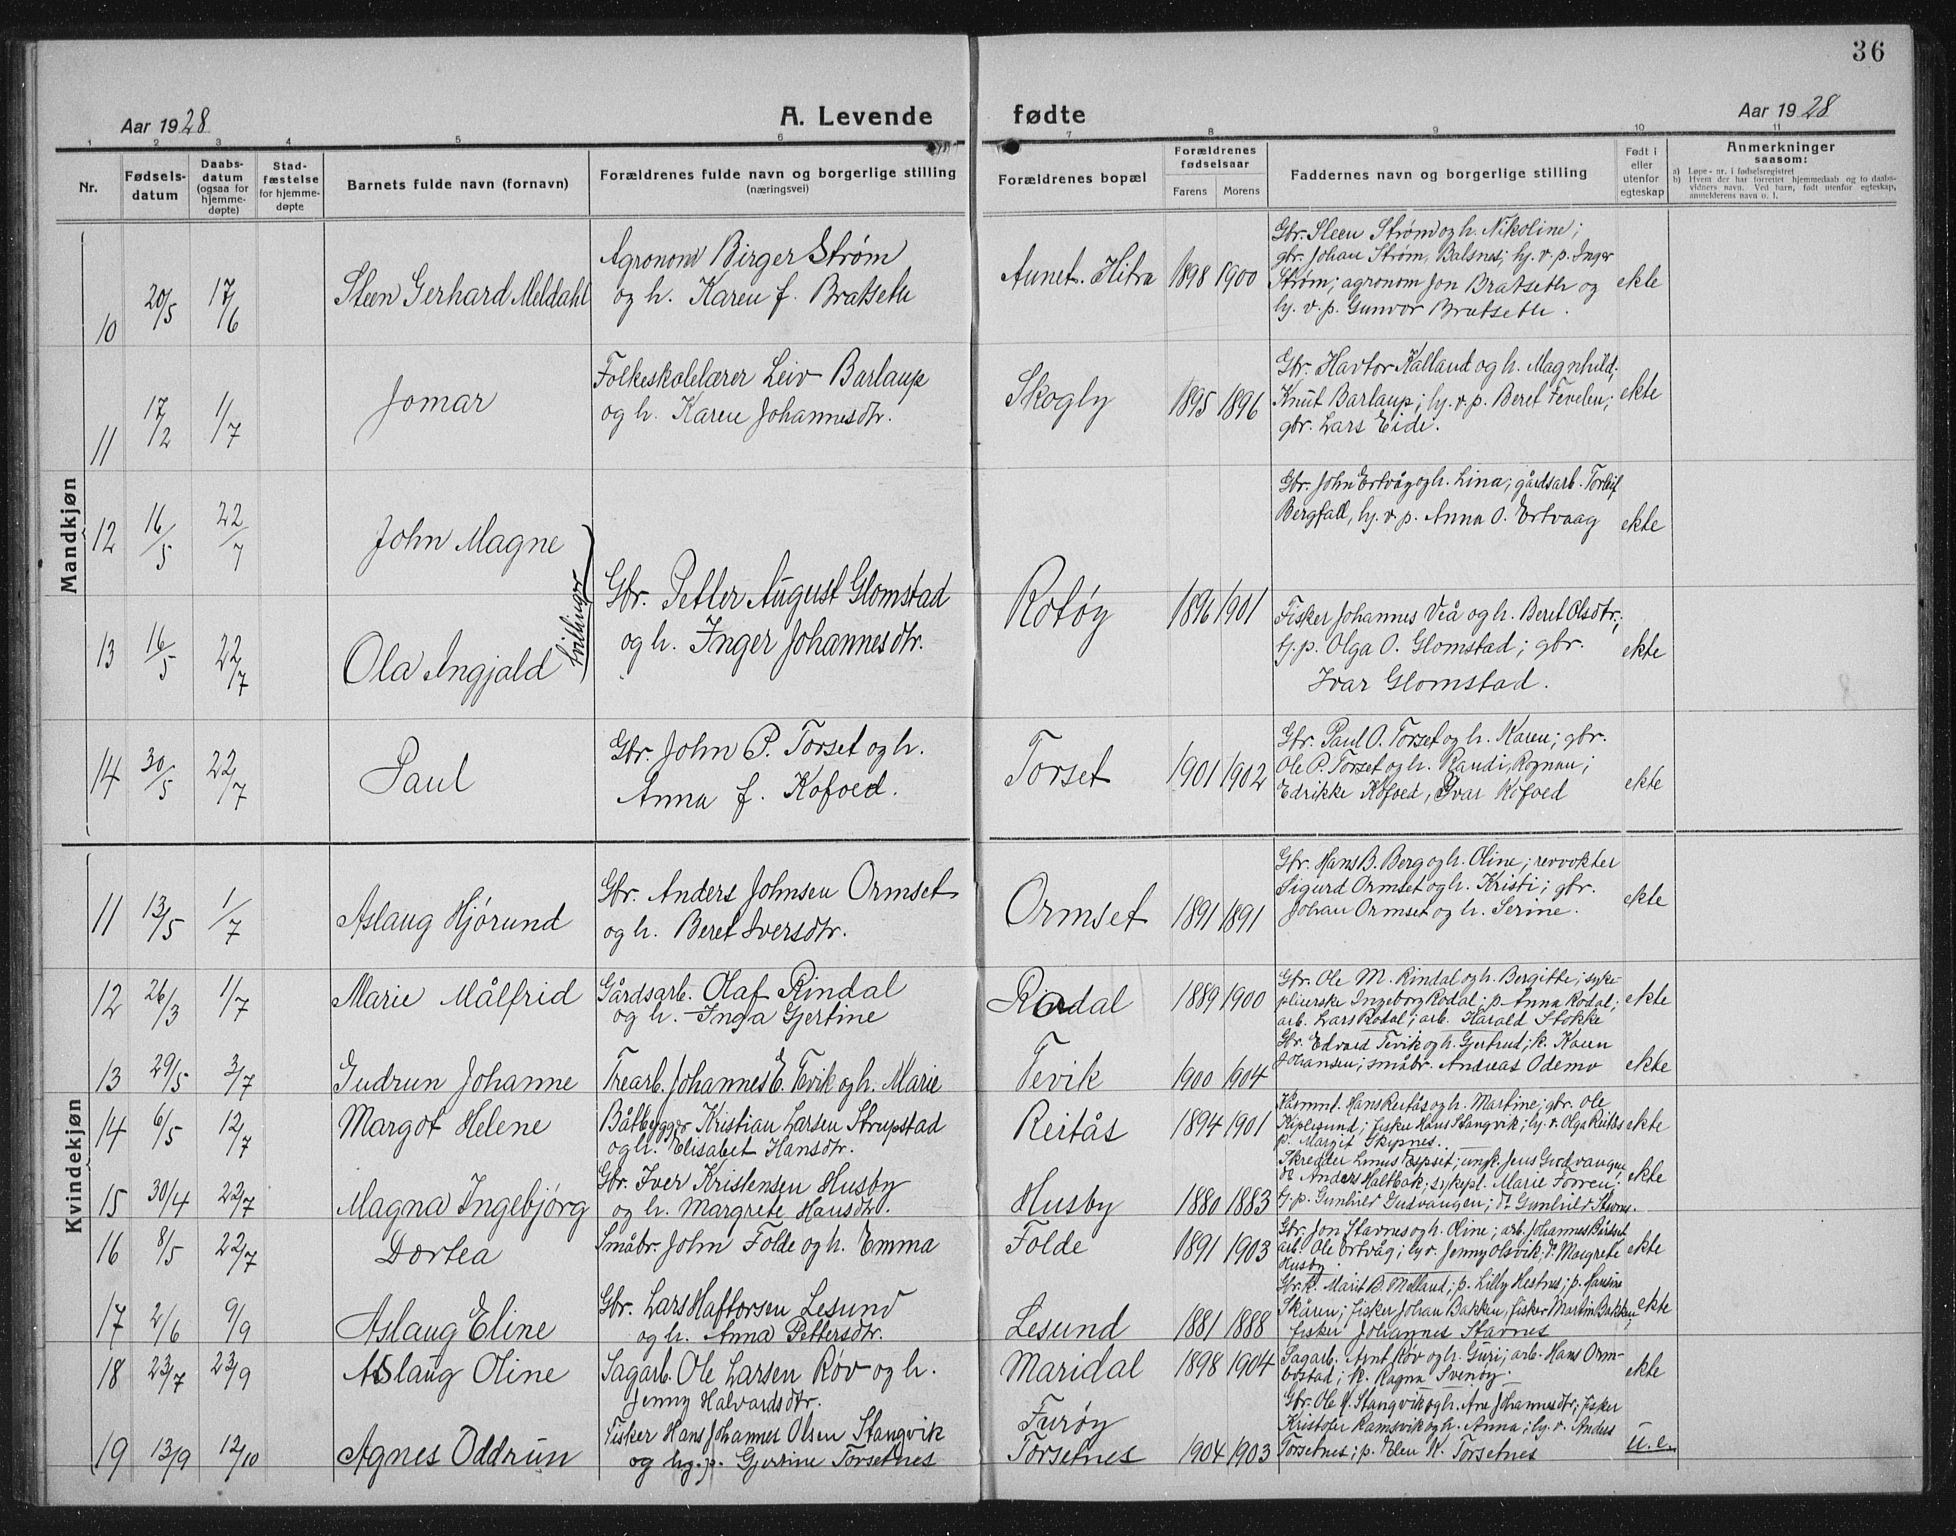 36
Aar 1928
A. Levende
fødte
Aar 1928
1 2 3 4 5 6 7 8 9 10 11
Nr.
Fødsels-
datum
Daabs-
datum
(ogsaa for
hjemme-
døpte)
Stad-
fæstelse
for hjemme-
døpte
Barnets fulde navn (fornavn)
Forældrenes fulde navn og borgerlige stilling
(næringsvei)
Forældrenes bopæl
Forældrenes
fødselsaar
Farens Morens
Faddernes navn og borgerlige stilling
Født i
eller
utenfor
egteskap
Anmerkninger
saasom:
a) Løpe-nr. i fødselsregistret
b) Hvem der har forrettet hjemmedaab og to daabs-
vidners navn. Ved barn, født utenfor egteskap,
anmelderens navn o. l.
Mandkjøn
10 20/5 17/6 Steen Gerhard Meldahl
Agronom Birger Strøm
og h. Karen f. Bratseth
Aunet. Hitra 1898 1900
Gbr. Steen Strøm og h. Nikoline;
gbr. Johan Strøm, Balsnes; hj. v. p. Inger
Strøm; agronom Jon Bratseth og
hj. v. p. Gunvor Bratseth.
ekte
11 17/2 1/7 Jomar
Folkeskolelærer Leiv Barlaup
og h. Karen Johannesdtr.
Skogly 1895 1896
Gbr. Havtor Kalland og h. Magnhild;
Knut Barlaup; hj. v. p. Beret Fevelen;
gbr. Lars Eide.
ekte
12 16/5 22/7 John Magne
Gbr. John Ertvåg og h. Lina; gårdsarb. Torleif
Bergfall, hj. v. p. Anna O. Ertvaag
ekte
tvillinger
Gbr. Petter August Glomstad
og h. Inger Johannesdtr.
Rotøy 1896 1901
13 16/5 22/7 Ola Ingjald
Fisker Johannes Veå og h. Beret Olsdtr.;
hj. p. Olga O. Glomstad; gbr.
Ivar Glomstad.
ekte
14 30/5 22/7 Paul
Gbr. John P. Torset og h.
Anna f. Kofoed.
Torset 1901 1902
Gbr. Paul O. Torset og h. Karen; gbr.
Ole P. Torset og h. Randi, Rognan;
Edrikke Kofoed, Ivar Kofoed
ekte
Kvindekjøn
11 13/5 1/7 Aslaug Hjørund
Gbr. Anders Johnsen Ormset
og h. Beret Iversdtr.
Ormset 1891 1891
Gbr. Hans B. Berg og h. Oline; revvokter
Sigurd Ormset og h. Kristi; gbr.
Johan Ormset og h. Serine.
ekte
12 26/3 1/7 Marie Målfrid
Gårdsarb. Olaf Rindal
og h. Inga Gjertine
Rodal 1889 1900
Gbr. Ole M. Rindal og h. Bergitte; syke-
pleierske Ingeborg Rodal; p. Anna Rodal;
arb. Lars Rodal; arb. Harald Stokke
ekte
13 29/5 3/7 Gudrun Johanne
Trearb. Johannes E. Tevik og h. Marie
Tevik 1900 1904
Gbr. Edvard Tevik og h. Gertrud; k. Karen
Johansen; småbr. Andreas Odemo
ekte
14 6/5 12/7 Margot Helene
Båtbygger Kristian Larsen Strupstad
og h. Elisabet Hansdtr.
Reitås 1894 1901
Hans Reitås og h. Martine; gbr. Ole
Kiplesund; fisker Hans Stangvik; hj. v. Olga Reitås
p. Margit Skypnes.
ekte
15 30/4 22/7 Magna Ingebjørg
Gbr. Iver Kristensen Husby
og h. Margrete Hansdtr.
Husby 1880 1883
Skredder Linus Espset; Jens Gudvangen;
Anders Haltbak; sykepl. Marie Forren.
hj. p. Gunhild Gudvangen; do Gunhild Stavnes.
ekte
16 8/5 22/7 Dortea
Småbr. John Folde og h. Emma
Folde 1891 1903
Gbr. Jon Stavnes og h. Oline; arb. Johannes Båtset
arb. Ole Ertvåg; hj. v. Jenny Olsvik; do Margrete
Husby.
ekte
17 2/6 9/9 Aslaug Eline
Gbr. Lars Haftorsen Lesund
og h. Anna Pettersdtr.
Lesund 1881 1888
Gbr. k. Marit B. Melland; p. Lilly Hestnes; p. Hansine
Skåren; fisker Johan Bakken, fisker Martin Bakken;
fisker Johannes Stavnes
ekte
18 23/7 23/9 Aslaug Oline
Sagarb. Ole Larsen Røv og h.
Jenny Halvardsdtr.
Maridal 1898 1904
Sagarb. Arnt Røv og h. Guri; arb. Hans Orm-
bostad; k. Ragna Svenøy.
ekte
19 13/9 12/10 Agnes Oddrun
Fisker Hans Johannes Olsen Stangvik
og hj. p. Gjertine Torsetnes
Furøy
Torsetnes 1904 1903
Gbr. Ole J. Stangvik og h. Ane Johannesdtr; fisker
Kristofer Ramsvik og h. Anna; hj. v. Anders
Torsetnes; p. Elen K. Torsetnes
u.e.